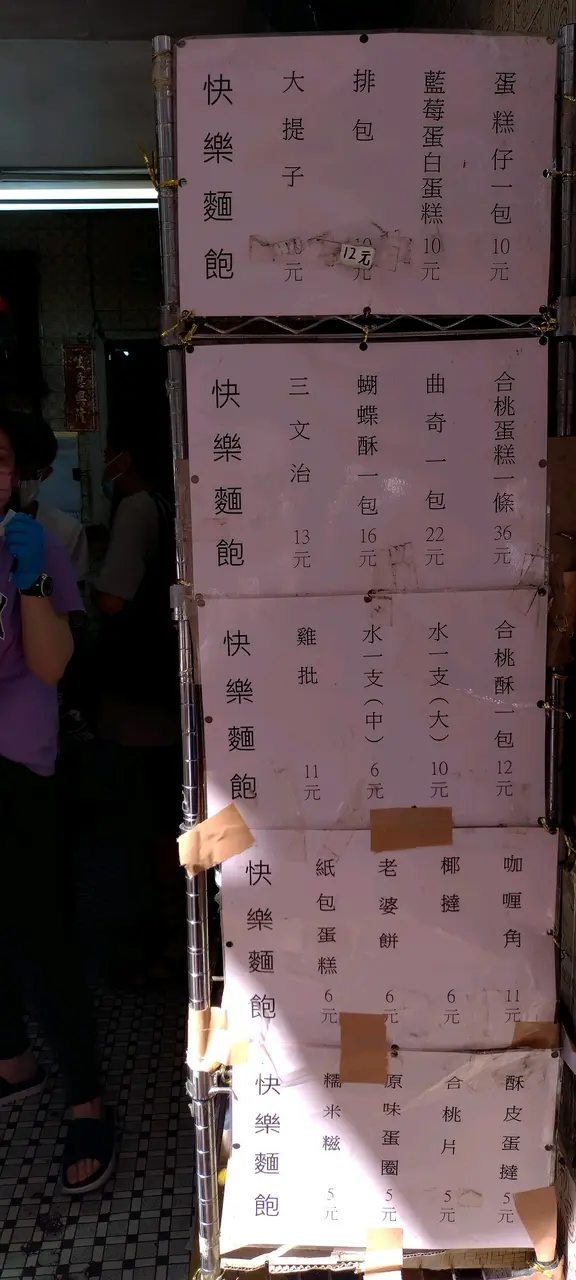 蛋糕仔一包10元
藍莓蛋白蛋糕10元
排包10元
12元
大提子10元
快樂麵飽
合桃蛋糕一條36元
曲奇一包22元
蝴蝶酥一包16元
三文治13元
快樂麵飽
合桃酥一包12元
水一支(大)10元
水一支(中)6元
雞批11元
快樂麵飽
咖喱角11元
椰撻6元
老婆餅6元
紙包蛋糕6元
快樂麵飽
酥皮蛋撻5元
合桃片5元
原味蛋圈5元
糯米糍5元
快樂麵飽